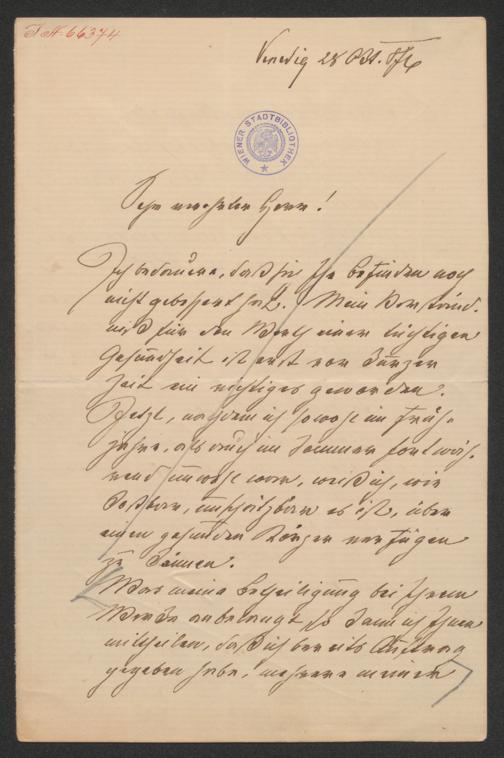 I.N. 66374
Venedig 28 Okt. 876
WIENER STADTBIBLIOTHEK
Sehr verehrter Herr!
Ich bedauere, daß sie Ihr Befinden noch
nicht gebessert hat. Mein Verständ-
niß für den Werth einer tüchtigen
Gesundheit ist erst vor kurzer
Zeit ein richtiges geworden.
Jetzt, nachdem ich sowohl im Früh-
jahre, als auch im Sommer fortwäh-
rend unwohl war, weiß ich, wie
kostbar, unschätzbar es ist, über
einen gesunden Körper verfügen
zu können.
Was meine Betheiligung bei Ihrem
Werke anbelangt so kann ich Ihnen
mittheilen, daß ich bereits Auftrag
gegeben habe, mehrere meiner